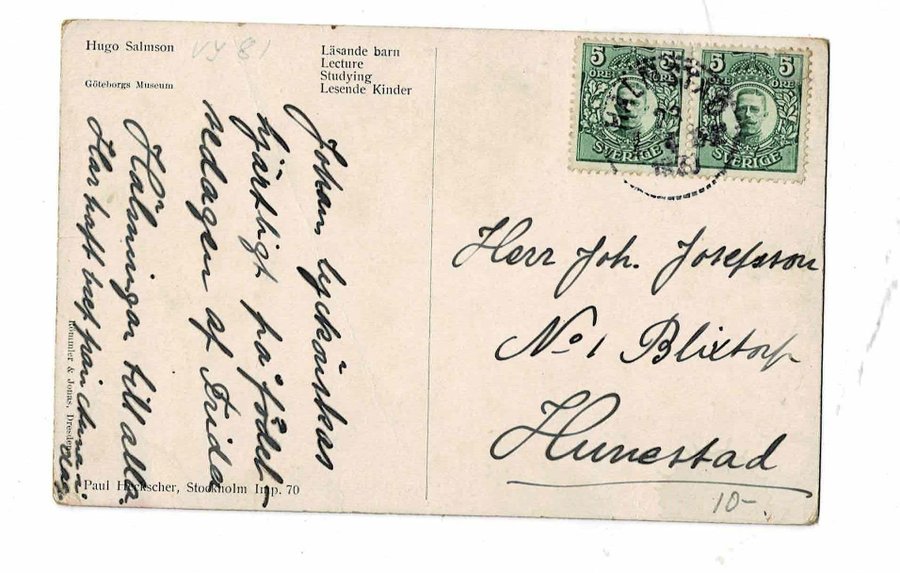 Hugo Salmson
Göteborgs Museum
Läsande barn
Lecture
Studying
Lesende Kinder
5 5
ÖRE ÖRE
SVERIGE
5 5
ÖRE ÖRE
SVERIGE
Johan lyckönskas
hjärtligt på födel-
sedagen af Frida
Hälsningar till alla.
Har haft bref från
Herr Joh. Josefsson
No 1 Blixtorp
Hunestad
Römmler & Jonas, Dresden
Paul Heckscher, Stockholm Imp. 70
10-